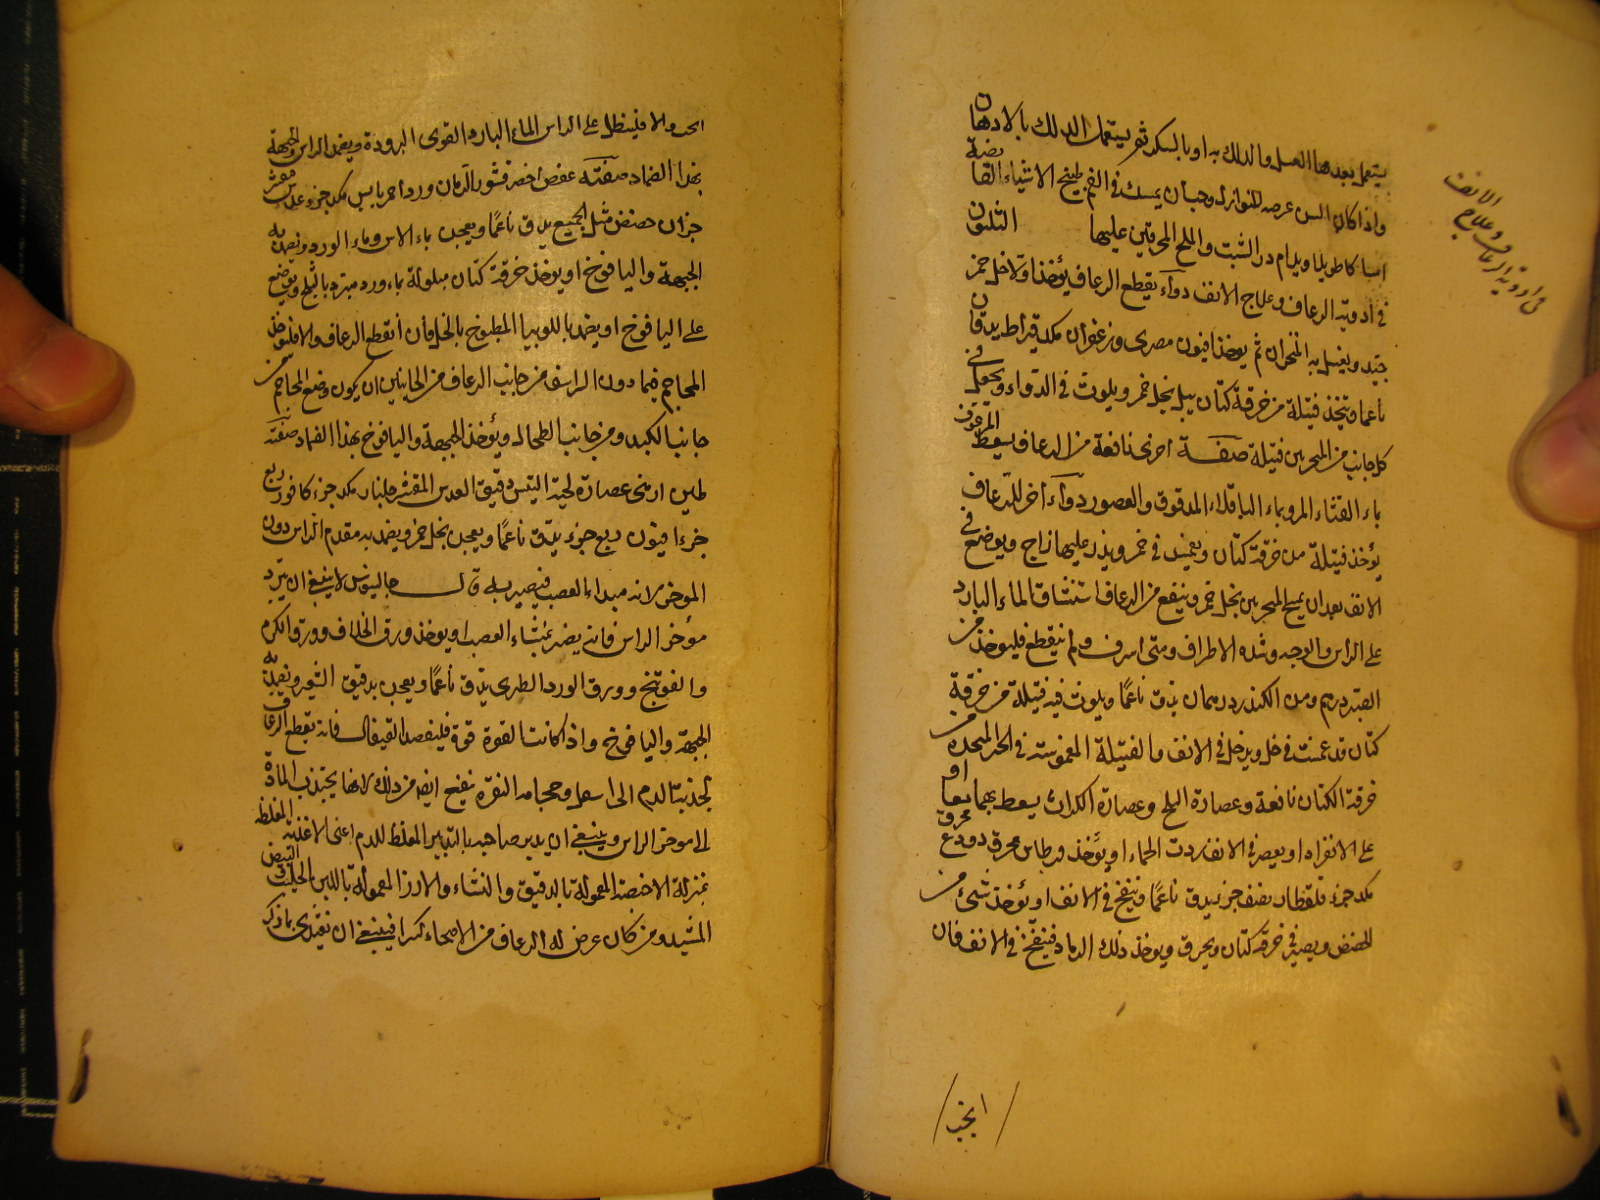 يستعمل بعدها العسل والدلك به او بالسكر ثم يستعمل الدلك بالادهان
واذا كان السن عرضه للنوازل وجب ان يمسك في الفم طبيخ الاشياء القابضة
اساكا طويلا ويدام در الشبت والملح المحرقين عليها الثلثون
في ادوية الرعاف وعلاج الانف دواء يقطع الرعاف يؤخذ خل خمر
جيد ويغسل به المنخران ثم يوخذ افيون مصري وزعفران مكد قيراط يدقان
ناعما ويتخذ فتيلة من خرقة كتان يبل بخل خمر ويلوث في الدواء ويجعل في
كل جانب من المنخرين فتيلة صفة اخرى نافعة من الرعاف يسعط المرعوف
بماء القثاء المر وبماء الباقلاء المدقوق والعصور دواء آخر للرعاف
يؤخذ فتيلة من خرقة كتان ويغمس في خمر ويذر عليها زاج ويوضع في
الانف بعد ان يمسح المنخرين بخل خمر وينفع من الرعاف استنشاق الماء البارد
على الراس والوجه وشد الاطراف ومتى اسرف ولم ينقطع فليوخذ من
درهم ومن الكندر درهمان يدق ناعما ويلوث فيه فتيلة من خرقة
كتان قد غمست في خل ويدخل في الانف والفتيلة المغموسة في الحبر المتخذة من
خرقة الكتان نافعة وعصارة البلح وعصارة الكراث يسعط بهما معا او
على الانفراد او يعصر في الانف روث الحمار او يؤخذ قرطاس محرق وودع محرق
مكد جزء قلقطار نصف جزء يدق ناعما وينفخ في الانف او يؤخذ شئ من
الحضض ويصير في خرقة كتان ويحرق ويوخذ ذلك الرماد فينفخ في الانف فان
في ادوية الرعاف وعلاج الانف
والا فلينطل على الراس الماء البارد القوى البرودة ويضمد الراس والجبهة
بهذا الضماد صفته عفص اخضر قشور الرمان ورد احمر يابس مكد جزء عدس مقشر
جزآن حضض مثل الجميع يدق ناعما ويعجن بماء الاس وماء الورد ويضمد به
الجبهة واليافوخ او يوخذ خرقة كتان مبلولة بماء ورد مبرد بالثلج ويوضع
على اليافوخ او يضمد باللوبيا المطبوخ بالخل فان انقطع الرعاف والا فليوضع
المحاجم فيما دون الشراسف من جانب الرعاف من الجانبين ان يكون وضع المحاجم من
جانب الكبد ومن جانب الطحال ويؤخذ الجبهة واليافوخ بهذا الضماد صفته
طين ارمنى عصارة لحية التيس دقيق العدس المقشر جلنار مكد جزء كافور ربع
جزء افيون ربع جزء يدق ناعما ويعجن بخل خمر ويضمد به مقدم الراس دون
الموخر لانه مبداء العصب فيضر به قال جالينوس لا ينبغي ان يبرد
مؤخر الراس فانه يضر بمنشاء العصب او يوخذ ورق الخلاف وورق الكرم
والفوتنج وورق الورد الطرى يدق ناعما ويعجن بدقيق الشعير ويضمد به
الجبهة واليافوخ واذا كانت القوة قوية فليفصد القيفال فانه يقطع الرعاف
لجذبه الدم الى اسفل وحجامة النقرة ينفع ايضا من ذلك لانها يجتذب المادة
الى موخر الراس وينبغي ان يدبر صاحبه بالتدبير المغلظ للدم اعنى الاغذية المغلظة
بمنزلة الاخبصة المعمولة بالدقيق والنشاء والارز المعمولة باللبن الحليب والبيض
المشيد ومن كان عرض له الرعاف من الاصحاء كثيرا فينبغي ان يغتذى بما ذكر